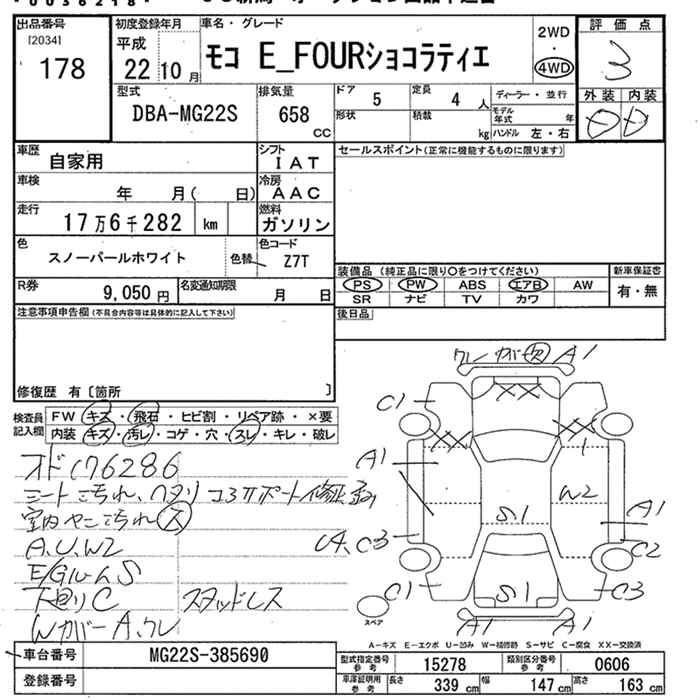 出品番号 初度登録年月 車名・グレード 2WD 評価点
[2034] 平成 モコ E_FOURショコラティエ ・ 3
178 22年 10月 4WD
型式 排気量 ドア 5 定員 4人 ディーラー・並行 外装 内装
DBA-MG22S 658 cc 形状 積載 kg モデル年式 年 D D
ハンドル 左・右
車歴 シフト セールスポイント(正常に機能するものに限ります)
自家用 IAT
車検 年 月( 日) 冷房 AAC
走行 燃料
17万6千282 km ガソリン
色 色コード
スノーパールホワイト 色替 Z7T
装備品 (純正品に限り○をつけてください) 新車保証書
R券 9,050円 名変通知期限 月 日 PS PW ABS エアB AW 有・無
SR ナビ TV カワ
注意事項申告欄(不具合内容等は具体的に記入して下さい) 後日品
修復歴 有 [箇所 ]
検査員記入欄 FW キズ・飛石・ヒビ割・リペア跡・×要
内装 キズ・汚レ・コゲ・穴・スレ・キレ・破レ
オド176286
シート汚れ、
室内ヤニ汚れ大
A.U.W2
E/GルームS
下廻りC スタッドレス
WカバーA.ワレ
A1
C1
XX
XX XX
A1
W2
S1
A1
C3 C2
C1 S1 C3
A1 A1
スペア
A-キズ E-エクボ U-凹み W-補修跡 S-サビ C-腐食 XX-交換済
車台番号 MG22S-385690 型式指定番号 参考 15278 類別区分番号 参考 0606
登録番号 車庫証明用 参考 長さ 339cm 幅 147cm 高さ 163cm